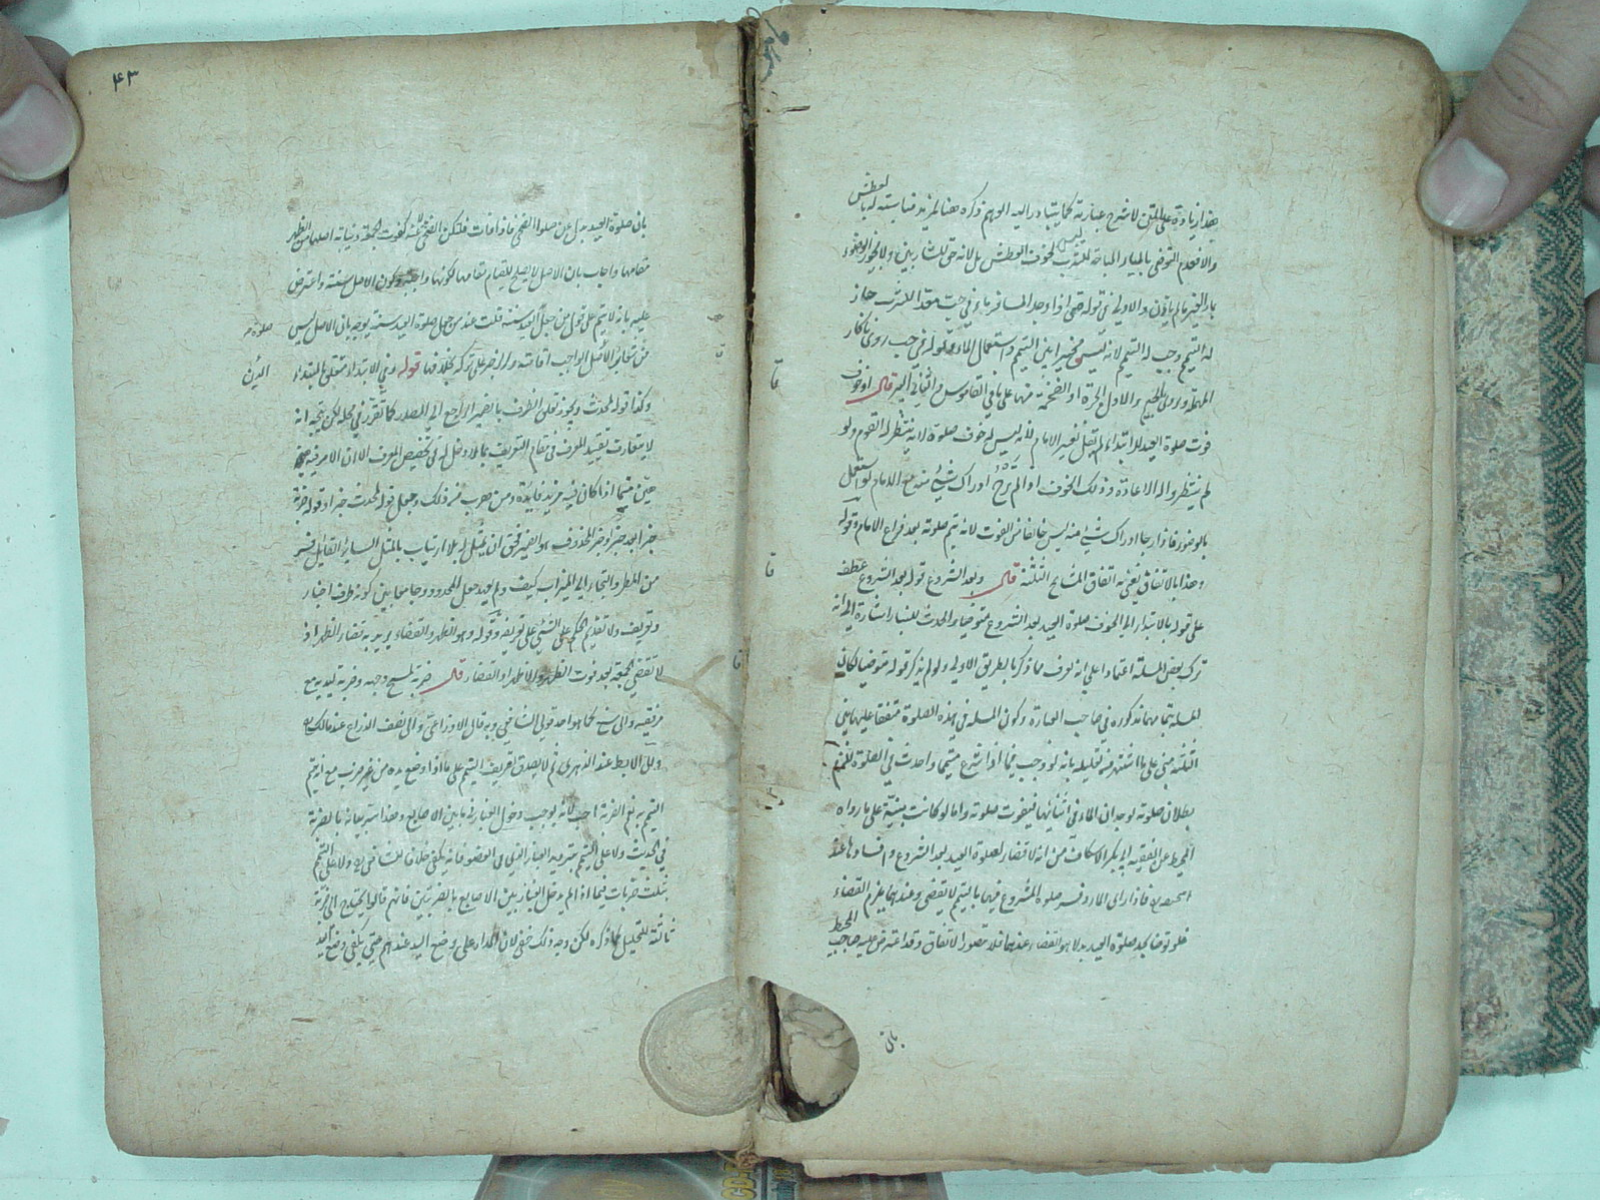 هذا زيادة على المتن لا شرح عبارته كما يتبادر اليه الوهم ذكره هنا لمزيد مناسبته له بالعطش
والا فعدم التوضي بالمياه المباحة للشرب ليس لخوف العطش بل لانه حق للشاربين ولا يجوز الوضوء
بماء الغير ما لم ياذن والاولى في قوله حتى اذا وجد المسافر ماء في حب معدا للشرب جاز
له التيمم وجب له التيمم لانه ليس مخيرا بين التيمم واستعمال الماء وقوله في حب روى بالحاء
المهملة وروى بالجيم والاول الجرة او الضخمة منها على ما في القاموس والثاني البير قال او خوف
فوت صلوة العيد للابتداء لم يقل لغير الامام لانه ليس له خوف صلوة لانه ينتظر له القوم ولو
لم ينتظروا له الاعادة وذلك الخوف اذا لم يرج ادراك شيء منه مع الامام لو اشتغل
بالوضوء فاذا رجا ادراك شيء منه ليس خائفا من الفوت لانه يتم صلوته بعد فراغ الامام وقوله
وهذا بالاتفاق يعني به اتفاق المشايخ الثلثة قال وبعد الشروع قوله بعد الشروع عطف
على قوله بالابتداء اي لخوف صلوة العيد بعد الشروع متوضيا والحدث للبناء اشارة الى انه
ترك بعض المسئلة اعتمادا على انه يعرف مما ذكر بالطريق الاولى ولو لم يذكر قوله متوضيا لكان
المسئلة بتمامها مذكورة في صاحب العبارة وكون المسئلة في هذه الصلوة متفقا عليها بين
الثلثة مبني على ما اشتهر من تعليله بانه لو وجب فيما اذا شرع متيمما واحدث في الصلوة للزم
بطلان صلوته لوجدان الماء في اثنائها فيفوت صلوته واما لو كانت مبنية على ما رواه
المحيط عن الفقيه ابي بكر الاسكاف من انه لا قضاء لصلوة العيد بعد الشروع وافسادها عند
ابي حنيفة فاذا راى الماء وفسد صلوة المشروع فيها بالتيمم لا يقضى وعندهما يلزم القضاء
فلو توضأ بعد صلوة العيد بدلا هو القضاء عندهما فلا تصور الاتفاق وقد اعترض عليه صاحب المحيط
بان
٤٣
بان صلوة العيد بدل عن صلوة الضحى فاذا فات فلتكن الضحى خلفه كفوت الجمعة ونيابة اصلها من الظهر
مقامها واجاب بان الاصل لا يصلح للقيام مقامها لكونها واجبة وكون الاصل سنة واعترض
عليه بانه لا يتم على قول من جعل العيد سنة قلت عند من جعل صلوة العيد سنة يوجه بان الاصل ليس
من شعائر الاصل الواجب اقامته ولذا يجبر على تركه بخلافها قوله وفي الابتداء متعلق بالمبتداء
صلوة م
وكذا قوله لحدث ويجوز تعلق الظرف بالضمير الراجع الى المصدر كما تقرر في محله لكن يتجه انه
لا يتعارف تقييد المعرف في مقام التعريف بما لا دخل له في تخصيص المعرف الا ان الامر فيه
هين سيما اذا كان فيه مزيد فايدة ومن هرب من ذلك وجعل قوله لحدث خبرا وقوله ضربة
خبرا بعد خبر او خبر المحذوف هو الضمير فحق ان يمثل له بلا ارتياب بالمثل الساير القائل يفر
من المطر والتجاء الى الميزاب كيف ولم يعهد جعل المحدود جامعا بين كونه طرف اخبار
وتعريف ولا تقديم الحكم على الشيء على تعريفه وقوله وهو الظهر والقضاء يريد به قضاء الظهر اذ
لا تقضى الجمعة بعد فوت الظهر والاظهر او القضاء قال ضربة لمسح وجهه وضربة ليديه مع
مرفقيه والى الرسغ كما هو احد قولي الشافعي وبه قال الاوزاعي والى نصف الذراع عند مالك
والى الابط عند الزهري ثم لا يصدق تعريف التيمم على ما اذا وضع يده من غير ضرب مع انه يتم
التيمم به نعم الضربة احب لانه يوجب دخول الغبار فيما بين الاصابع وهذا سر بيانه بالضربة
في الحديث ولا على التيمم بتذرية الغبار الذي في العضو فانه يكفي خلافا للشافعي ولا على التيمم
بثلث ضربات فيما اذا لم يدخل الغبار بين الاصابع بالضربتين فانهم قالوا يحتاج الى ضربة
ثالثة للتخليل كما ذكره لكن وجه ذلك خفي لان المدار على وضع اليد عندهم حتى يكفي وضع اليد